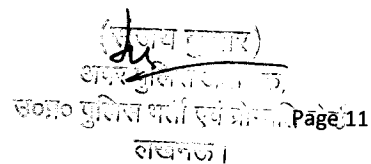 (संजय कुमार)
अपर पुलिस
उ०प्र० पुलिस भर्ती एवं Page 11
लखनऊ।